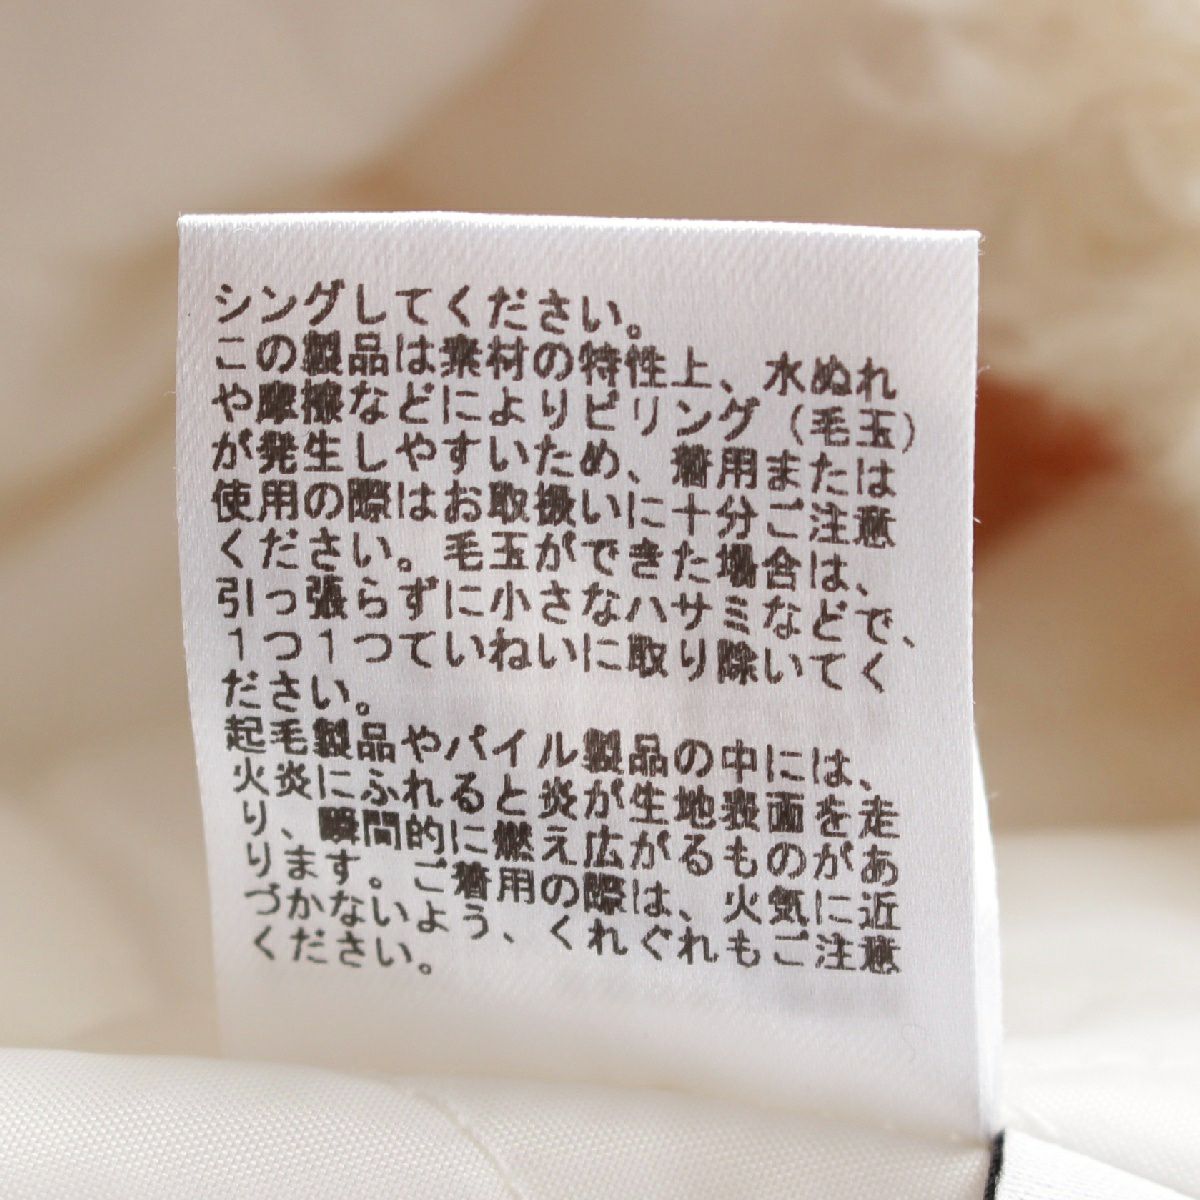 シングしてください。
この製品は素材の特性上、水ぬれ
や摩擦などによりピリング（毛玉）
が発生しやすいため、着用または
使用の際はお取扱いに十分ご注意
ください。毛玉ができた場合は、
引っ張らずに小さなハサミなどで、
1つ1つていねいに取り除いてく
ださい。
起毛製品やパイル製品の中には、
火炎にふれると炎が生地表面を走
り、瞬間的に燃え広がるものがあ
ります。ご着用の際は、火気に近
づかないよう、くれぐれもご注意
ください。